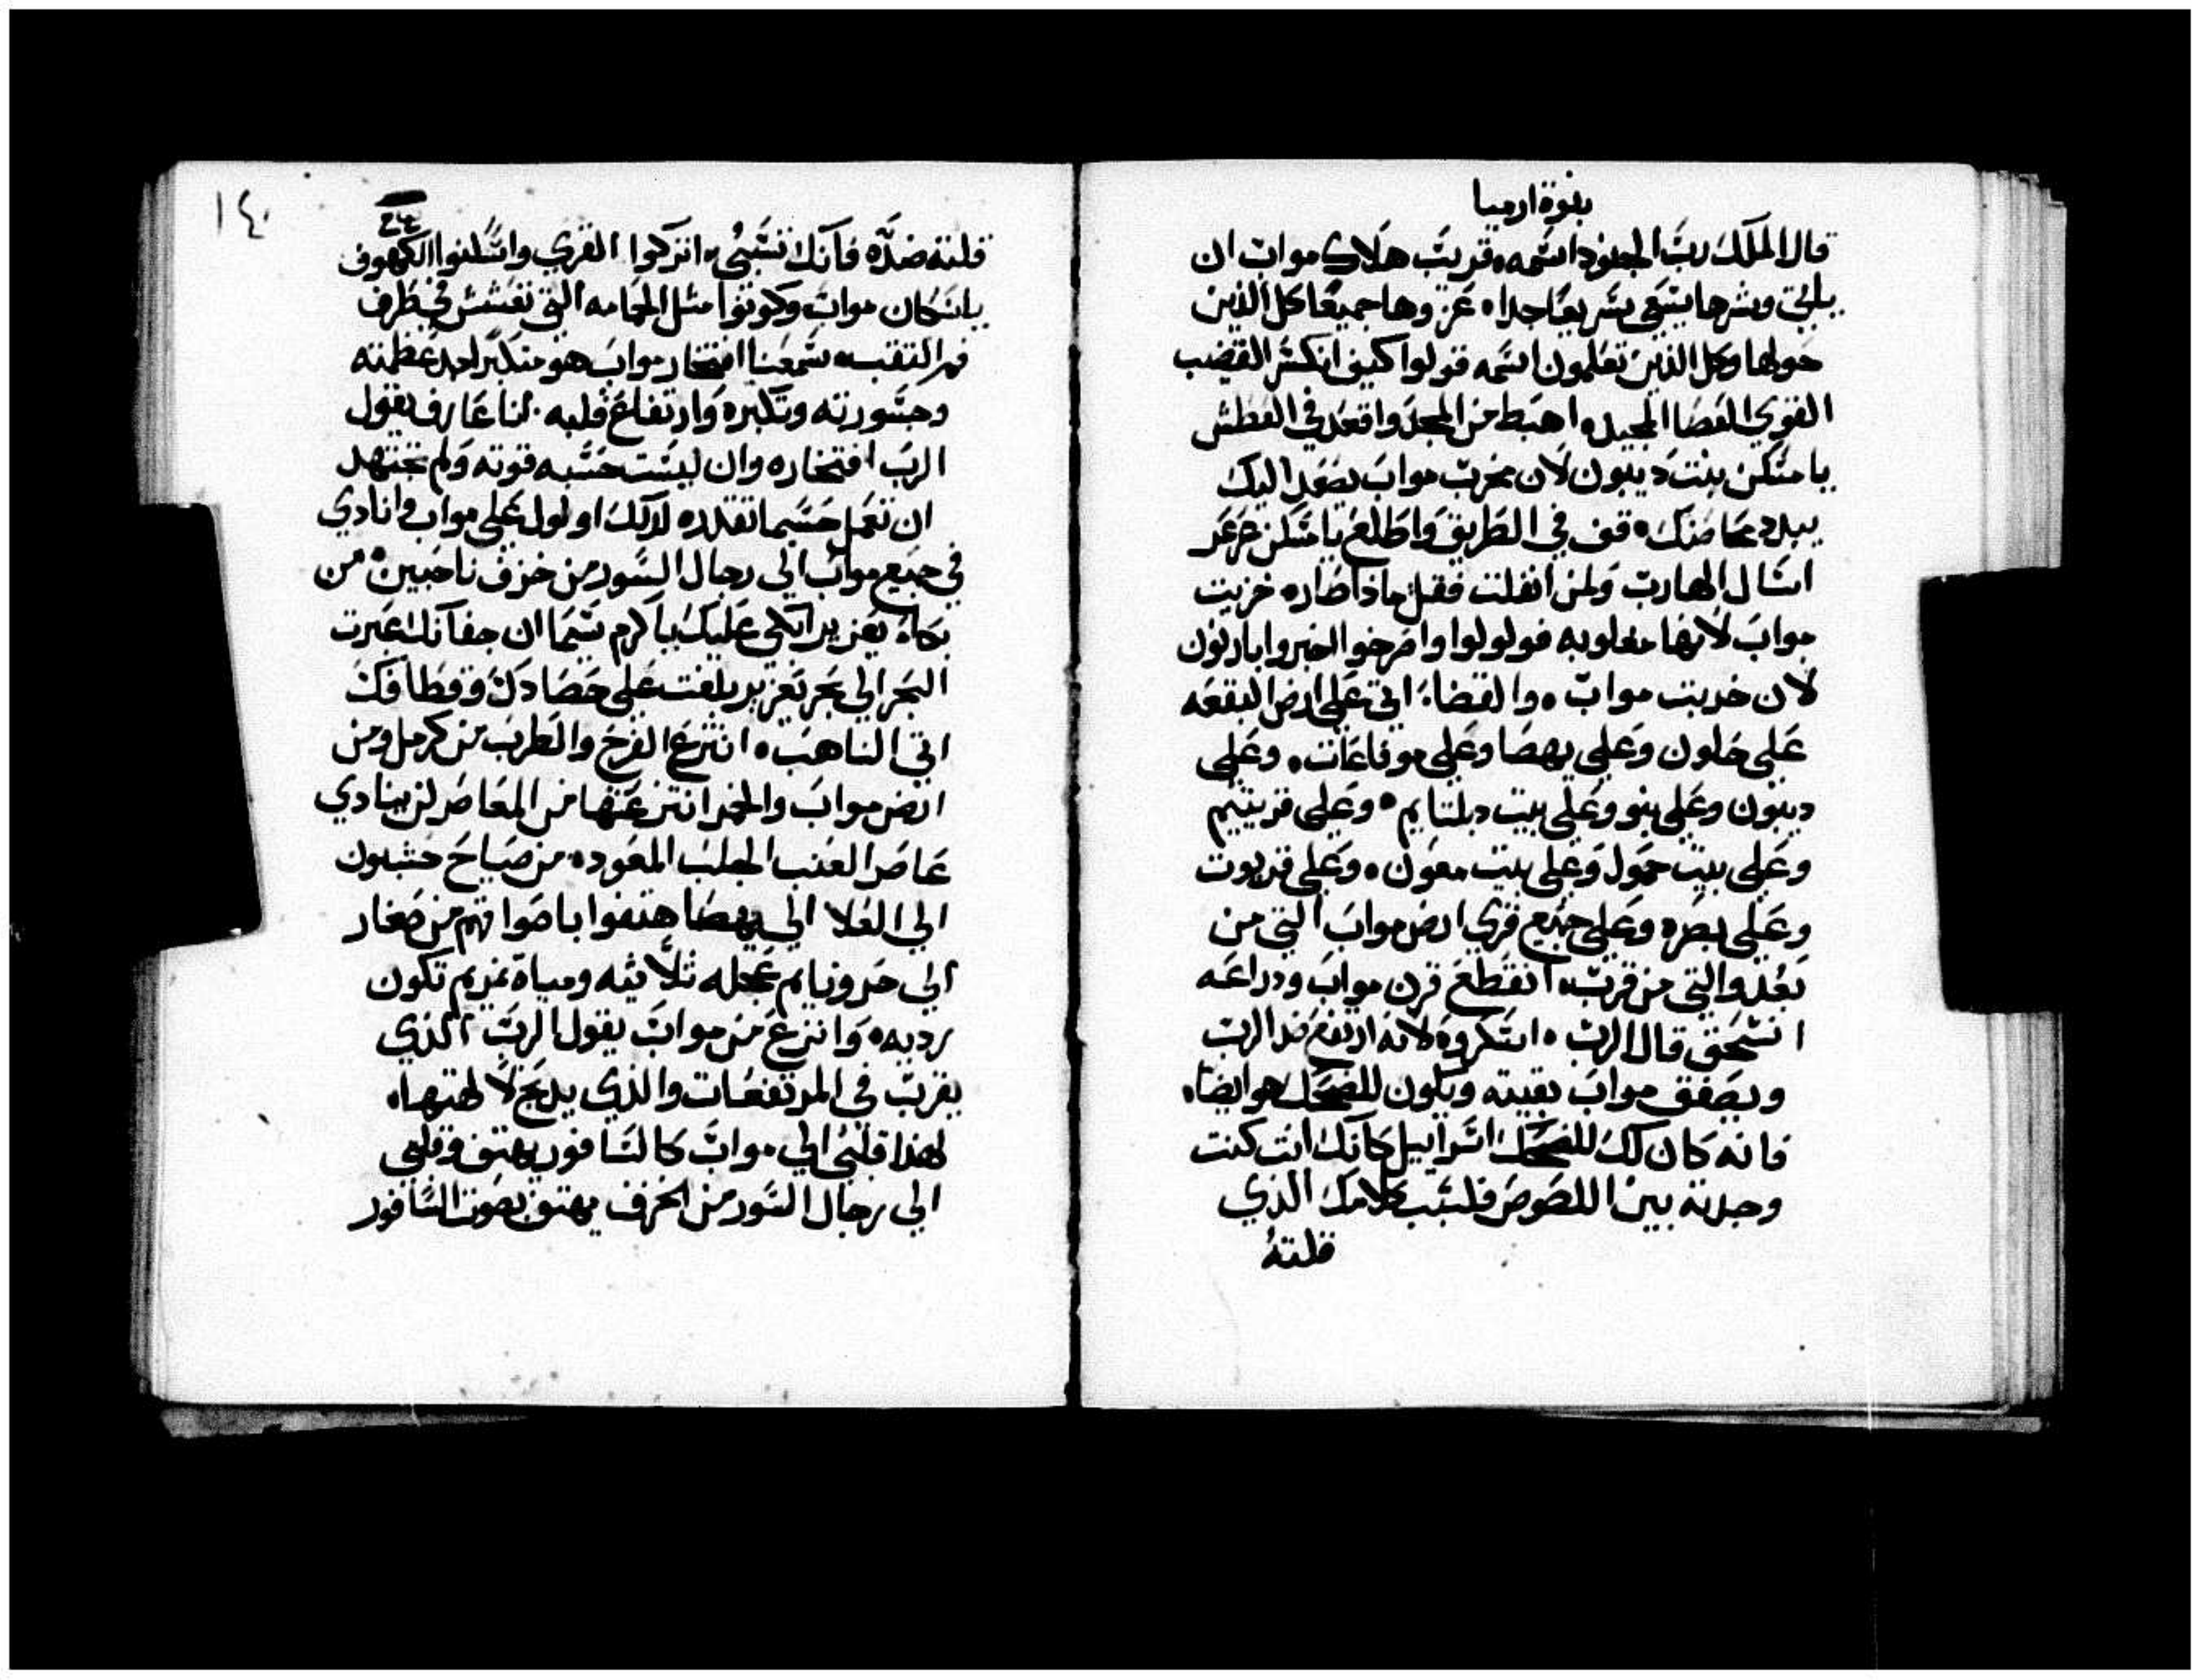 نبوة ارميا
قال الملك رب الجنود اسمه قريب هلاك مواب ان
ياتي وشرها يسعي سريعا جدا عزوها جميعا كل الذين
حولها وكل الذين تعلمون اسمه قولوا كيف انكسر القضيب
القوي العصا المجيده اهبط من المجد واقعد في العطش
يا مسكن بنت ديبون لان مخرب مواب يصعد اليك
يبدد محاصنك قف في الطريق واطلع يا مسكن عرعر
اسال الهارب ولمن انفلت فقل ماذا صاره خربت
مواب لانها مغلوبه فولولوا واصرخوا اخبروا بارنون
لان خربت مواب والقضا اتي علي ارض البقعه
علي حلون وعلي يهصا وعلي موفاعات وعلي
ديبون وعلي نبو وعلي بيت دبلتايم وعلي قريتيم
وعلي بيت جمول وعلي بيت معون وعلي قريوت
وعلي بصره وعلي جميع قري ارض مواب التي من
بعد والتي من قرب انقطع قرن مواب ودراعه
انسحق قال الرب اسكروه لانه ارتفع ضد الرب
ويصفق مواب بقيته ويكون للضحك هو ايضا
فانه كان لك للضحك اسراييل كانك انت كنت
وجدته بين اللصوص فلسبب كلامك الذي
قلته
١٤٠
قلته ضده فانك تسبي اتركوا القري واسكنوا الكهوف
يا سكان مواب وكونوا مثل الحمامه التي تعشش في طرف
فم التقب سمعنا افتخار مواب هو متكبر جدا عظمته
وجسورته وتكبره وارتفاع قلبه انا عارف يقول
الرب افتخاره وان ليست حسبه قوته ولم تجتهد
ان تعمل حسبما تقدره لذلك اولول علي مواب وانادي
في جميع مواب الي رجال السور من خزف ناحبين من
بكاء يعزير ابكي عليك يا كرم سيما ان جفانك عبرت
البحر الي بحر يعزير بلغت علي حصادك وقطافك
اتي الناهب انتزع الفرح والطرب من كرمل ومن
ارض مواب والخمر انتزعتها من المعاصر لن ينادي
عاصر العنب الجلب المعوده من صياح حشبون
الي العلا الي يهصا هتفوا باصواتهم من صغار
الي حرونايم عجله ثلاثيه ومياة نمريم تكون
رديه وانتزع من مواب يقول الرب الذي
يقرب في المرتفعات والذي يدبح لالهتها
لهذا قلبي الي مواب كالسافور يهتف وقلبي
الي رجال السور من الخزف يهتف بصوت السافور